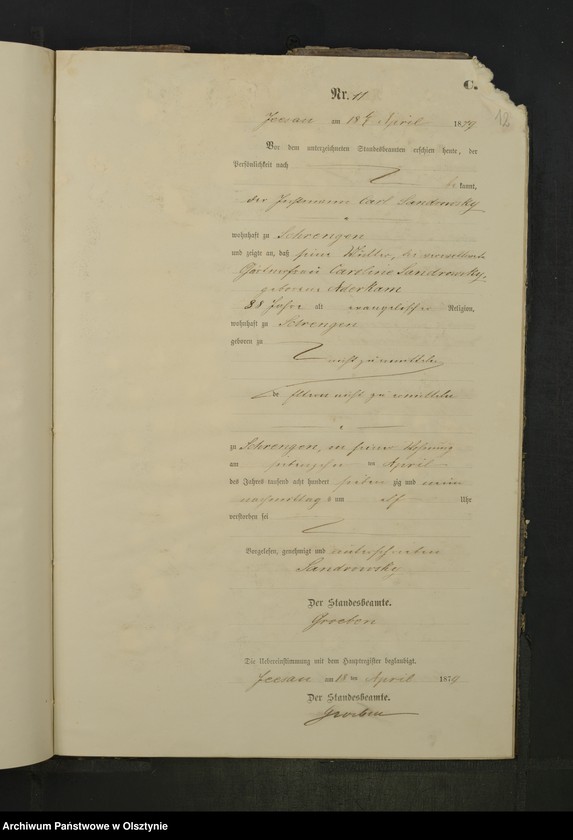 C.
Nr. 11.
12
Jeesau am 18t April 1879
Vor dem unterzeichneten Standesbeamten erschien heute, der
Persönlichkeit nach
be kannt,
der Instmann Carl Sandrowsky
wohnhaft zu Schrengen
und zeigte an, daß seine Mutter, die verwittwete
Caroline Sandrowsky,
geborene Aderkam
88 Jahre alt evangelischer Religion,
wohnhaft zu Schrengen
geboren zu
nicht zu ermitteln
Die Eltern nicht zu ermitteln
zu Schrengen, in seiner Wohnung
am siebenzehn ten April
des Jahres tausend acht hundert sieben zig und neun
nachmittag s um elf Uhr
verstorben sei
Vorgelesen, genehmigt und unterschrieben
Sandrowsky
Der Standesbeamte.
Groeben
Die Uebereinstimmung mit dem Hauptregister beglaubigt.
Jeesau am 18 ten April 1879
Der Standesbeamte.
Groeben
Archiwum Państwowe w Olsztynie